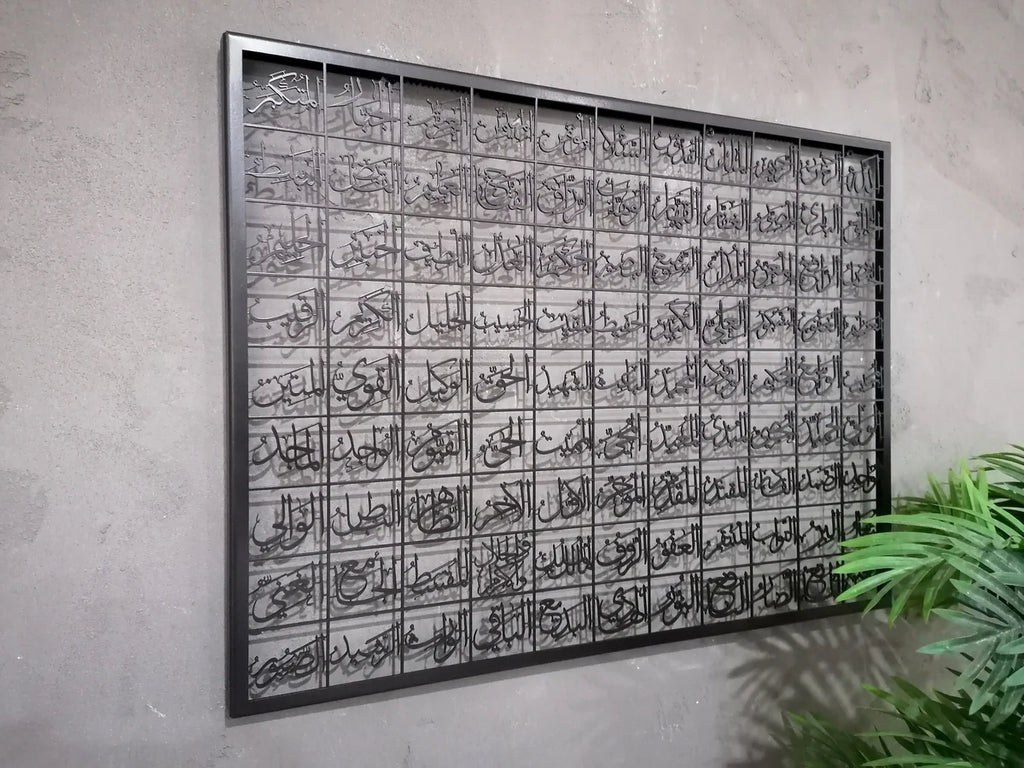 الله الرحمن الرحيم الملك القدوس السلام المؤمن المهيمن العزيز الجبار المتكبر
الخالق البارئ المصور الغفار القهار الوهاب الرزاق الفتاح العليم القابض الباسط
السميع البصير الحكم العدل اللطيف الخبير الحليم
العلي الكبير الحفيظ المقيت الحسيب الجليل الكريم الرقيب
المجيد الباعث الشهيد الحق الوكيل القوي المتين
الحميد المحصي المبدئ المعيد المحيي المميت الحي القيوم الواجد الماجد
الواحد الصمد القادر المقتدر المقدم المؤخر الأول الآخر الظاهر الباطن الوالي
البر التواب المنتقم العفو الرؤف مالك الملك ذو الجلال والإكرام المقسط الجامع الغني
النافع النور الهادي البديع الباقي الوارث الرشيد الصبور